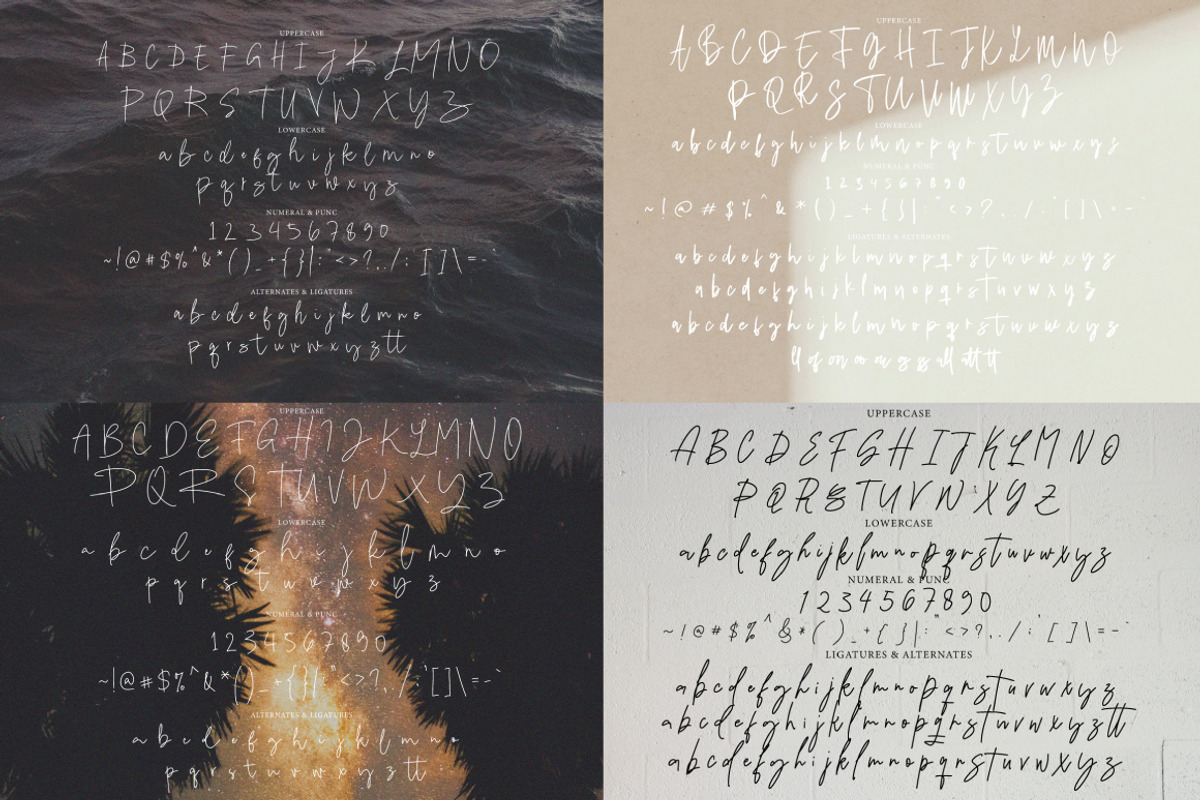 UPPERCASE
A B C D E F G H I J K L M N O
P Q R S T U V W X Y Z
LOWERCASE
a b c d e f g h i j k l m n o
p q r s t u v w x y z
NUMERAL & PUNC
1 2 3 4 5 6 7 8 9 0
~!@#$%^&*()_+{}|:"<>?,./;'[]\=-`
ALTERNATES & LIGATURES
a b c d e f g h i j k l m n o
p q r s t u v w x y z tt
UPPERCASE
A B C D E F G H I J K L M N O
P Q R S T U V W X Y Z
LOWERCASE
a b c d e f g h i j k l m n o p q r s t u v w x y z
NUMERAL & PUNC
1 2 3 4 5 6 7 8 9 0
~!@#$%^&*()_+{}|:<>?,./;'[]\=-`
LIGATURES & ALTERNATES
a b c d e f g h i j k l m n o p q r s t u v w x y z
a b c d e f g h i j k l m n o p q r s t u v w x y z
a b c d e f g h i j k l m n o p q r s t u v w x y z
UPPERCASE
A B C D E F G H I J K L M N O
P Q R S T U V W X Y Z
LOWERCASE
a b c d e f g h i j k l m n o
p q r s t u v w x y z
NUMERAL & PUNC
1 2 3 4 5 6 7 8 9 0
~!@#$%^&*()_+{}|:"<>?,./;'[]\=-`
ALTERNATES & LIGATURES
a b c d e f g h i j k l m n o
p q r s t u v w x y z tt
UPPERCASE
A B C D E F G H I J K L M N O
P Q R S T U V W X Y Z
LOWERCASE
a b c d e f g h i j k l m n o p q r s t u v w x y z
NUMERAL & PUNC
1 2 3 4 5 6 7 8 9 0
~!@#$%^&*()_+{}|:"<>?,./;'[]\=-`
LIGATURES & ALTERNATES
a b c d e f g h i j k l m n o p q r s t u v w x y z
a b c d e f g h i j k l m n o p q r s t u v w x y z tt
a b c d e f g h i j k l m n o p q r s t u v w x y z